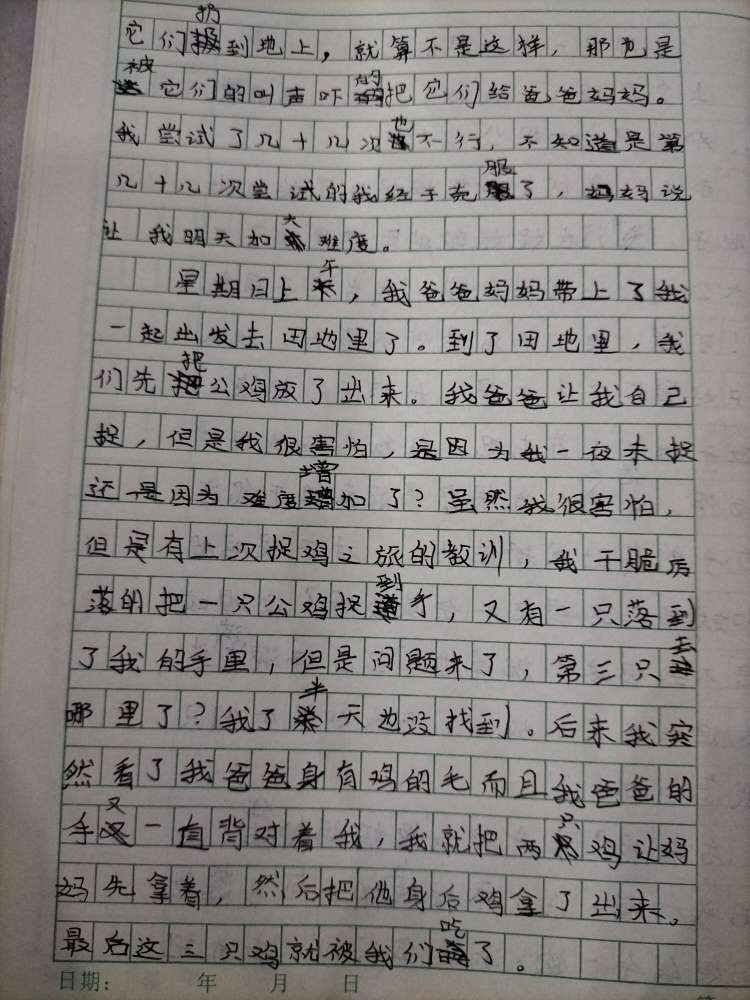 它们扔到地上，就算不是这样，那也是
被它们的叫声吓的把它们给爸爸妈妈。
我尝试了几十几次也不行，不知道是第
几十几次尝试的我终于克服了，妈妈说
让我明天加大难度。
星期日上午，我爸爸妈妈带上了我
一起出发去田地里了。到了田地里，我
们先把公鸡放了出来。我爸爸让我自己
捉，但是我很害怕，是因为我一夜未捉
还是因为难度增加了？虽然我很害怕，
但是有上次捉鸡之旅的教训，我干脆后
落的把一只公鸡捉到手，又有一只落到
了我的手里，但是问题来了，第三只去
哪里了？我了半天也没找到。后来我突
然看了我爸爸身有鸡的毛而且我爸爸的
手又一直背对着我，我就把两只鸡让妈
妈先拿着，然后把他身后鸡拿了出来。
最后这三只鸡就被我们吃了。
日期： 年 月 日